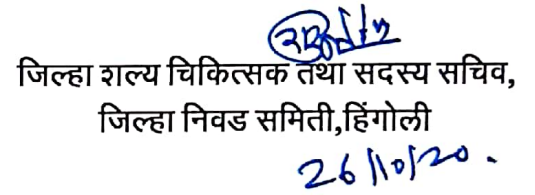 जिल्हा शल्य चिकित्सक तथा सदस्य सचिव,
जिल्हा निवड समिती,हिंगोली
26/10/20.